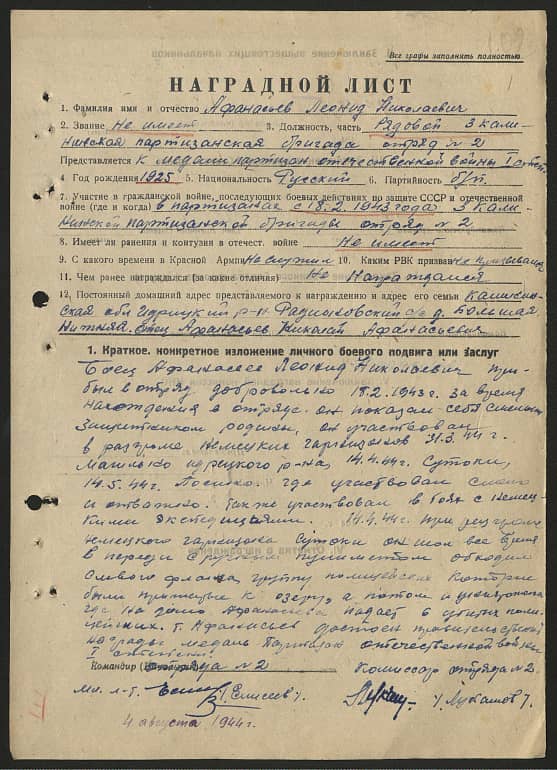 Все графы заполнять полностью
НАГРАДНОЙ ЛИСТ
1. Фамилия имя и отчество Афанасьев Леонид Николаевич
2. Звание Не имеет 3. Должность, часть Рядовой 3 кали-
нинская партизанская бригада отряд №2
Представляется к медали партизан отечественной войны I степ.
4. Год рождения 1925 5. Национальность Русский 6. Партийность б/п.
7. Участие в гражданской войне, последующих боевых действиях по защите СССР и отечественной
войне (где и когда) в партизанах с 18.2.1943 года 3 Кали-
нинской партизанской бригады отряд №2
8. Имеет ли ранения и контузии в отечест. войне Не имеет
9. С какого времени в Красной Армии Не служил 10. Каким РВК призван Не призывался
11. Чем ранее награждался (за какие отличия) Не Награждался
12. Постоянный домашний адрес представляемого к награждению и адрес его семьи Калинин-
ская обл Идрицкий р-н с/с д. Большая
Нижняя. Отец Афанасьев Николай Афанасьевич
1. Краткое, конкретное изложение личного боевого подвига или заслуг
Боец Афанасьев Леонид Николаевич при-
был в отряд добровольно 18.2.1943г. за время
нахождения в отряде он показал себя смелым
защитником родины, он участвовал
в разгроме немецких гарнизонов 31.3.44г.
р-на, 14.4.44г. Сутоки,
14.5.44г. где участвовал смело
и отважно. Также участвовал в боях с немец-
кими экспедициями. 14.4.44г. при разгроме
немецкого гарнизона Сутоки он шол все время
в переди с ручным пулеметом обходил
с левого фланга, группу полицейских которые
были прижаты к озеру, а потом и
где на долю Афанасьева падает 6 убитых поли-
цейских. т. Афанасьев достоин правительственной
награды медаль Партизан отечественной войны
I степени.
Командир отряда №2 Комиссар отряда №2
мл. л-т. /Елисеев/ /Лукашов/
4 августа 1944г.